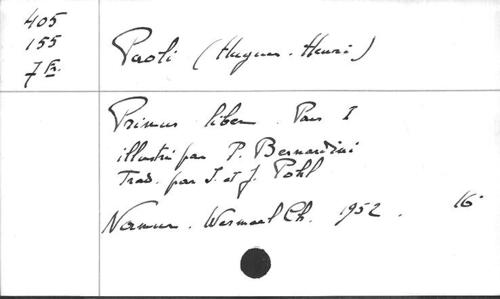 405
155
7 Fr.
Paoli (Hugues-Henri)
Primus liber. Pars I
illustré par P. Bernardini
Trad. par J. et J. Pohl
Namur. Wesmael Ch. 1952. 16°